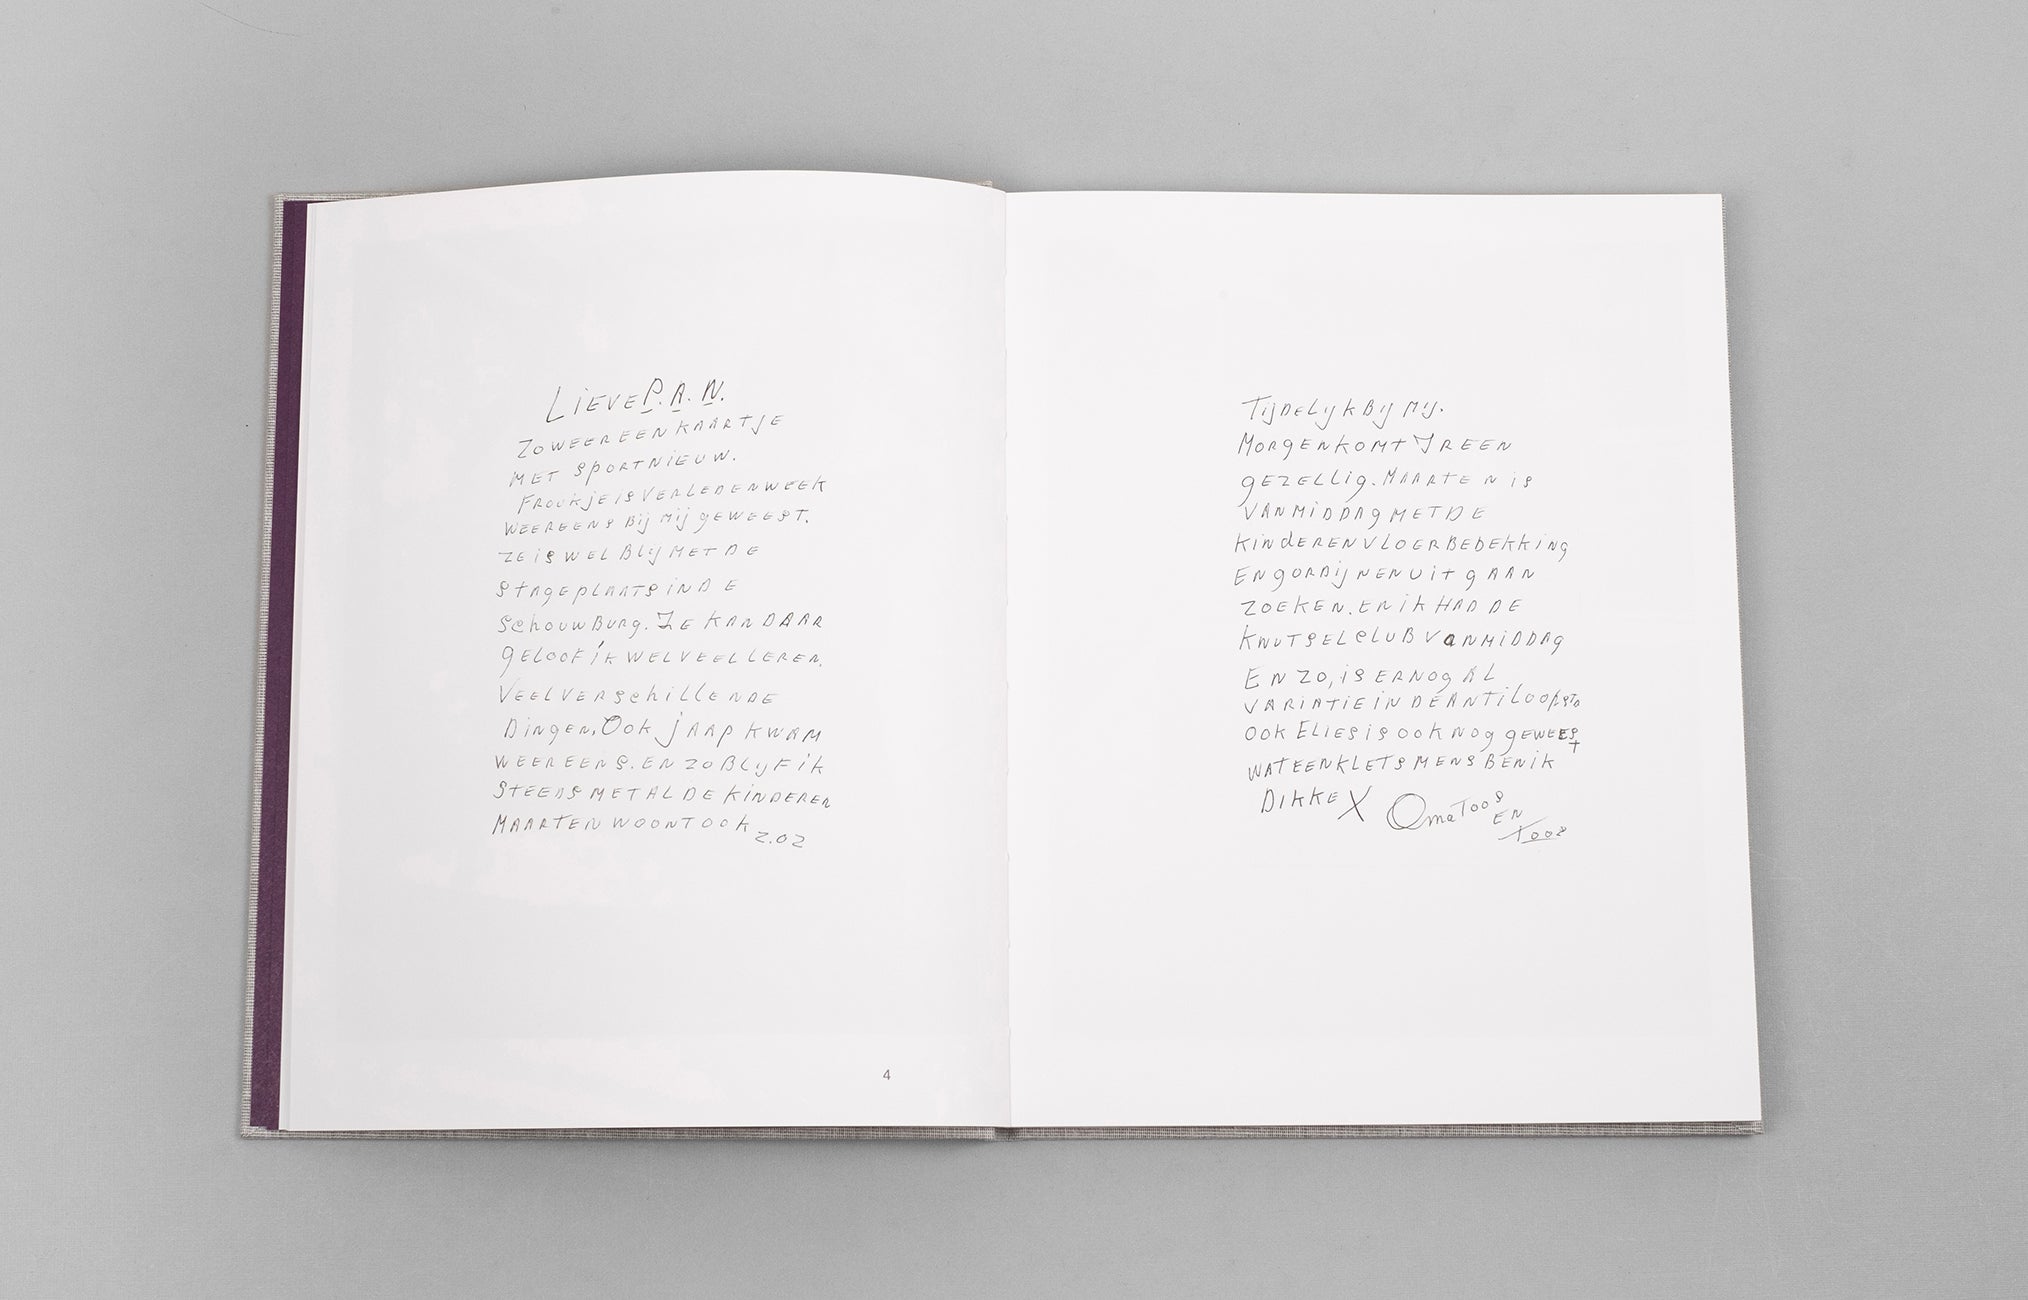 Lieve P.A.N.
Zo weer een kaartje
met sportnieuw.
Froukje is verleden week
weer eens bij mij geweest.
Ze is wel blij met de
stageplaats in de
schouwburg. Ze kan daar
geloof ik wel veel leren.
Veel verschillende
dingen. Ook Jaap kwam
weer eens. en zo blijf ik
steeds met al de kinderen
Maarten woont ook z.oz
4
Tijdelijk bij mij.
Morgen komt Ireen
gezellig. Maarten is
vanmiddag met de
kinderen vloerbedekking
en gordijnen uit gaan
zoeken. en ik had de
knutselclub vanmiddag
En zo, is er nog al
variatie in de Antiloopstr
ook Elies is ook nog geweest
wat een kletsmens ben ik
Dikke X Oma Toos
en
Toos